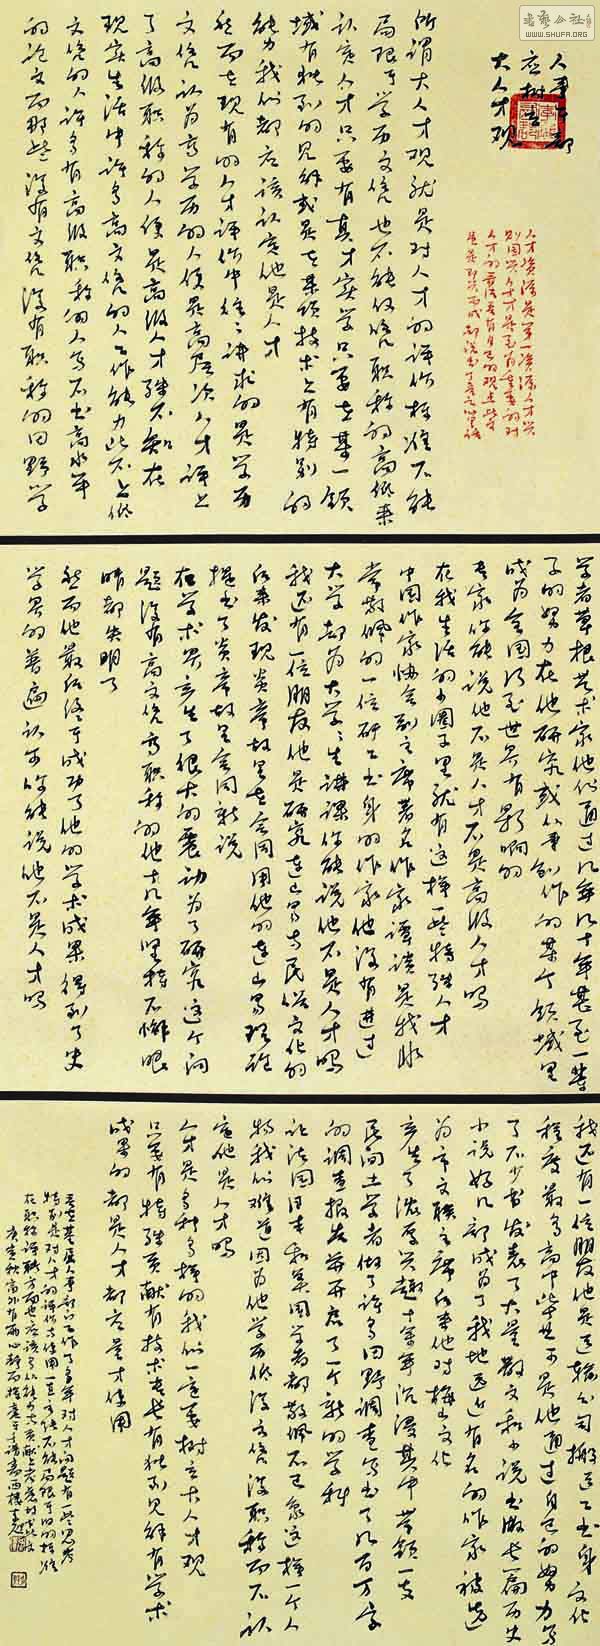 书艺公社
WWW.SHUFA.ORG
人事干部
应树立
大人才观
人才资源是第一资源人才兴
则国兴人才是至为重要的对
人才的看法各有自己的观点
所谓大人才观就是对人才的评价标准不能
局限于学历文凭也不能仅凭职称的高低来
认定人才只要有真才实学只要在某一领
域有独到的见解或是在某项技术上有特别的
能力我们都应该认定他是人才
然而在现有的人才评价中往往讲求的是学历
文凭认为高学历的人便是高层次人才评上
了高级职称的人便是高级人才殊不知在
现实生活中许多高文凭的人工作能力比不上低
文凭的人许多有高级职称的人写不出高水平
的论文而那些没有文凭没有职称的田野学
学者草根艺术家他们通过几年几十年甚至一辈
子的努力在他研究或从事创作的某个领域里
成为全国乃至世界有影响的
专家你能说他不是人才不是高级人才吗
在我生活的小圈子里就有这样一些特殊人才
中国作家协会副主席著名作家谭谈是我非
常敬佩的一位矿工出身的作家他没有进过
大学却为大学生讲课你能说他不是人才吗
我还有一位朋友他是研究连山易与民俗文化的
后来发现炎帝故里在会同用他的连山易理论
提出了炎帝故里会同新说
在学术界产生了很大的震动为了研究这个问
题没有高文凭高职称的他十几年坚持不懈眼
睛都失明了
然而他最后终于成功了他的学术成果得到了史
学界的普遍认可你能说他不是人才吗
我还有一位朋友他是运输公司搬运工出身文化
程度最多高中毕业可是他通过自己的努力写
了不少书发表了大量散文和小说出版长篇历史
小说好几部成为了我地远近有名的作家被选
为市文联主席后来他对梅山文化
产生了浓厚兴趣十年沉浸其中带领一支
民间土学者做了许多田野调查写出了几百万字
的调查报告并开启了一个新的学科
让法国日本和美国学者都敬佩不已象这样一个人
物我们难道因为他学历低没文凭没职称而不认
定他是人才吗
人才是多种多样的我们一定要树立大人才观
只要有特殊贡献有技术专长有独到见解有学术
成果的都是人才都应量才使用